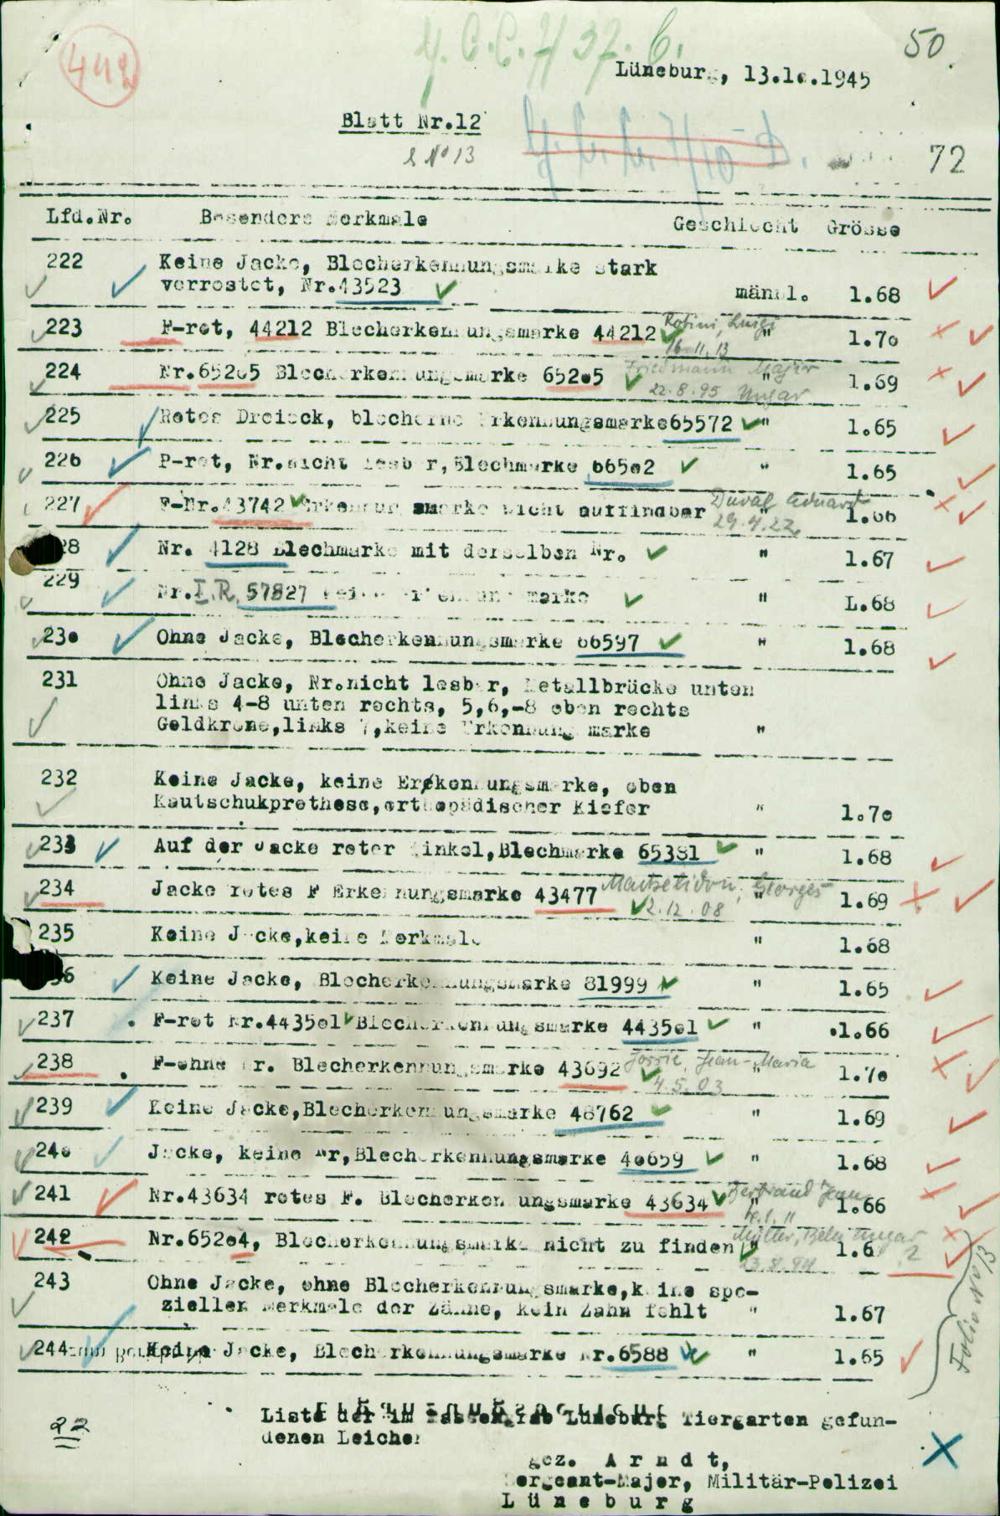 442
Y.C.C.7/37.6.
50.
Lüneburg, 13.10.1945
Blatt Nr.12
& No 13
72
Lfd.Nr. Besondere Merkmale Geschlecht Grösse
222 Keine Jacke, Blecherkennungsmarke stark
verrostet, Nr.43523 männl. 1.68
223 F-rot, 44212 Blecherkennungsmarke 44212 " 1.7o
Robini, Luigi
16.11.13
224 Nr.652o5 Blecherkennungsmarke 652o5 " 1.69
Friedmann Major
22.8.95 Ungar
225 Rotes Dreieck, blecherne Erkennungsmarke65572 " 1.65
226 P-rot, Nr.nicht lesbar, Blechmarke 665o2 " 1.65
227 F-Nr.43742 Erkennungsmarke nicht auffindbar " 1.66
Duval Eduard
29.4.22.
28 Nr. 4128 Blechmarke mit derselben Nr. " 1.67
229 Nr.I.R. 57827 keine Erkennungsmarke " 1.68
23o Ohne Jacke, Blecherkennungsmarke 66597 " 1.68
231 Ohne Jacke, Nr.nicht lesbar, Metallbrücke unten
links 4-8 unten rechts, 5,6,-8 oben rechts
Geldkrone,links 7,keine Erkennungsmarke "
232 Keine Jacke, keine Erkennungsmarke, oben
Kautschukprothese,orthopädischer Kiefer " 1.7o
233 Auf der Jacke roter Winkel,Blechmarke 65381 " 1.68
234 Jacke rotes F Erkennungsmarke 43477 " 1.69
Georges
2.12.08
235 Keine Jacke,keine Merkmale " 1.68
36 Keine Jacke, Blecherkennungsmarke 81999 " 1.65
237 F-rot Nr.4435o1 Blecherkennungsmarke 4435o1 " 1.66
238 F-ohne Nr. Blecherkennungsmarke 43692 " 1.7o
Jorrie Jean-Maria
4.5.03
239 Keine Jacke,Blecherkennungsmarke 48762 " 1.69
24o Jacke, keine Nr,Blecherkennungsmarke 4o659 " 1.68
241 Nr.43634 rotes F. Blecherkennungsmarke 43634 " 1.66
Bertrand Jean
242 Nr.652o4, Blecherkennungsmarke nicht zu finden " 1.6 ?
Müller, Bela Ungar
243 Ohne Jacke, ohne Blecherkennungsmarke,keine spe-
ziellen Merkmale der Zähne, kein Zahn fehlt " 1.67
244 Keine Jacke, Blecherkennungsmarke Nr.6588 " 1.65
Folio No 13
22
Liste der im Lüneburg Tiergarten gefun-
denen Leichen
gez. A r n d t,
Sergeant-Major, Militär-Polizei
L ü n e b u r g